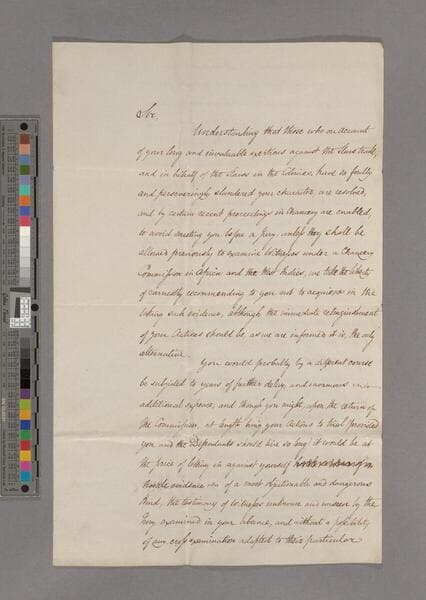 Sir,
Understanding that those who on account
of your long and invaluable exertions against the Slave trade,
and in behalf of the Slaves in the Colonies, have so foully
and perseveringly slandered your character, are resolved,
and by certain recent proceedings in Chancery are enabled,
to avoid meeting you before a Jury, unless they shall be
allowed previously to examine Witnesses under a Chancery
Commission in Africa and the West Indies, we take the liberty
of earnestly recommending to you not to acquiesce in the
taking such evidence, although the immediate relinquishment
of your Actions should be, as we are informed it is, the only
alternative.
You would probably by a different course
be subjected to years of further delay, and enormous
additional expence; and though you might, upon the return of
the Commission, at length bring your Actions to trial provided
you and the Defendants should live so long, it would be at
the price of letting in against yourself
hostile evidence of a most objectionable and dangerous
kind, the testimony of Witnesses unknown and unseen by the
Jury, examined in your absence, and without a possibility
of any cross examination adapted to their particular